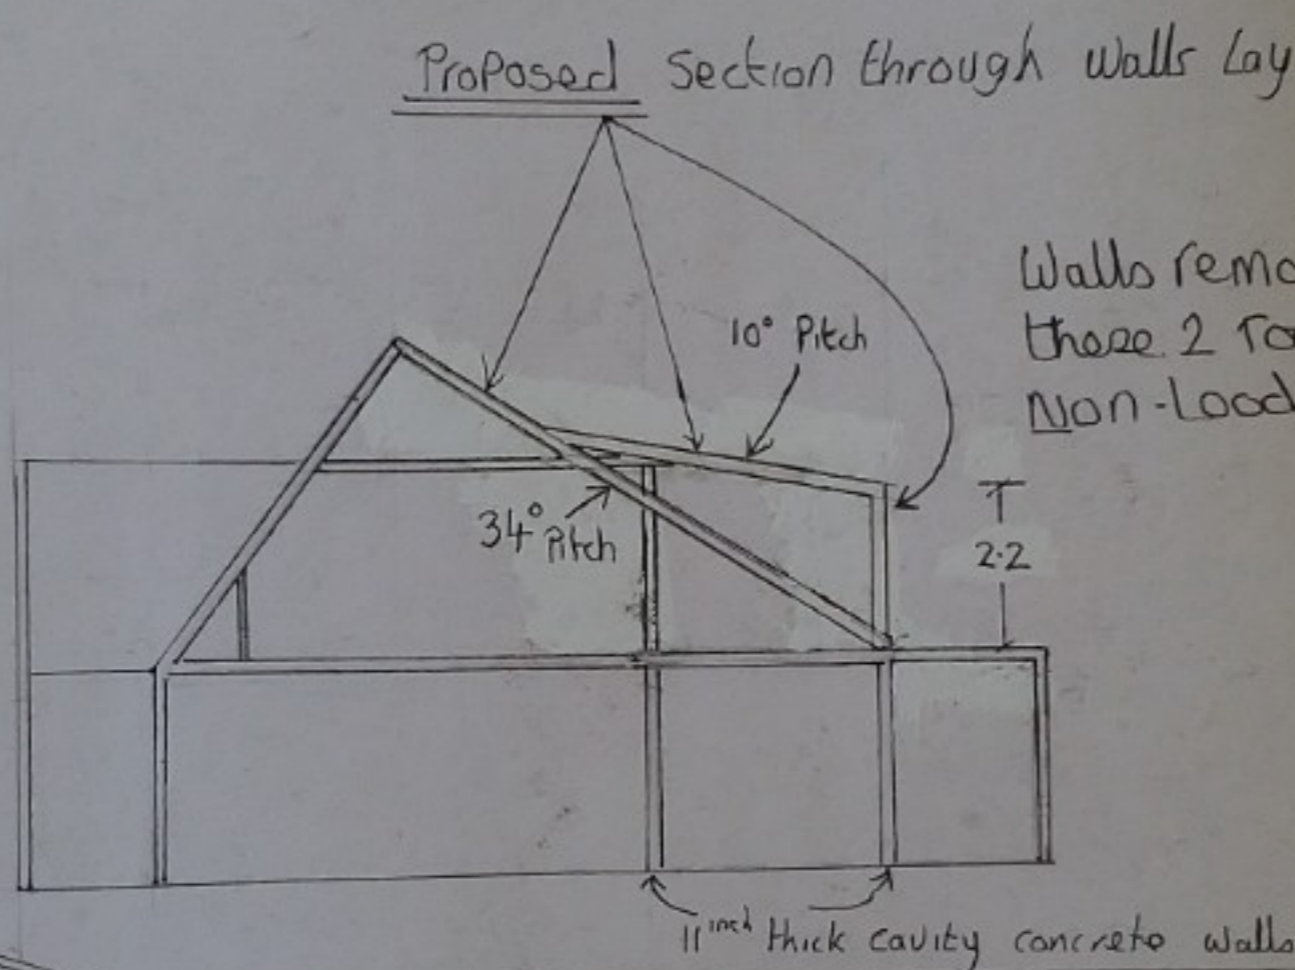 Proposed Section through Walls Lay
Walls remo
these 2 ro
Non-Load
10° Pitch
34° Pitch
2.2
11 inch thick cavity concrete walls